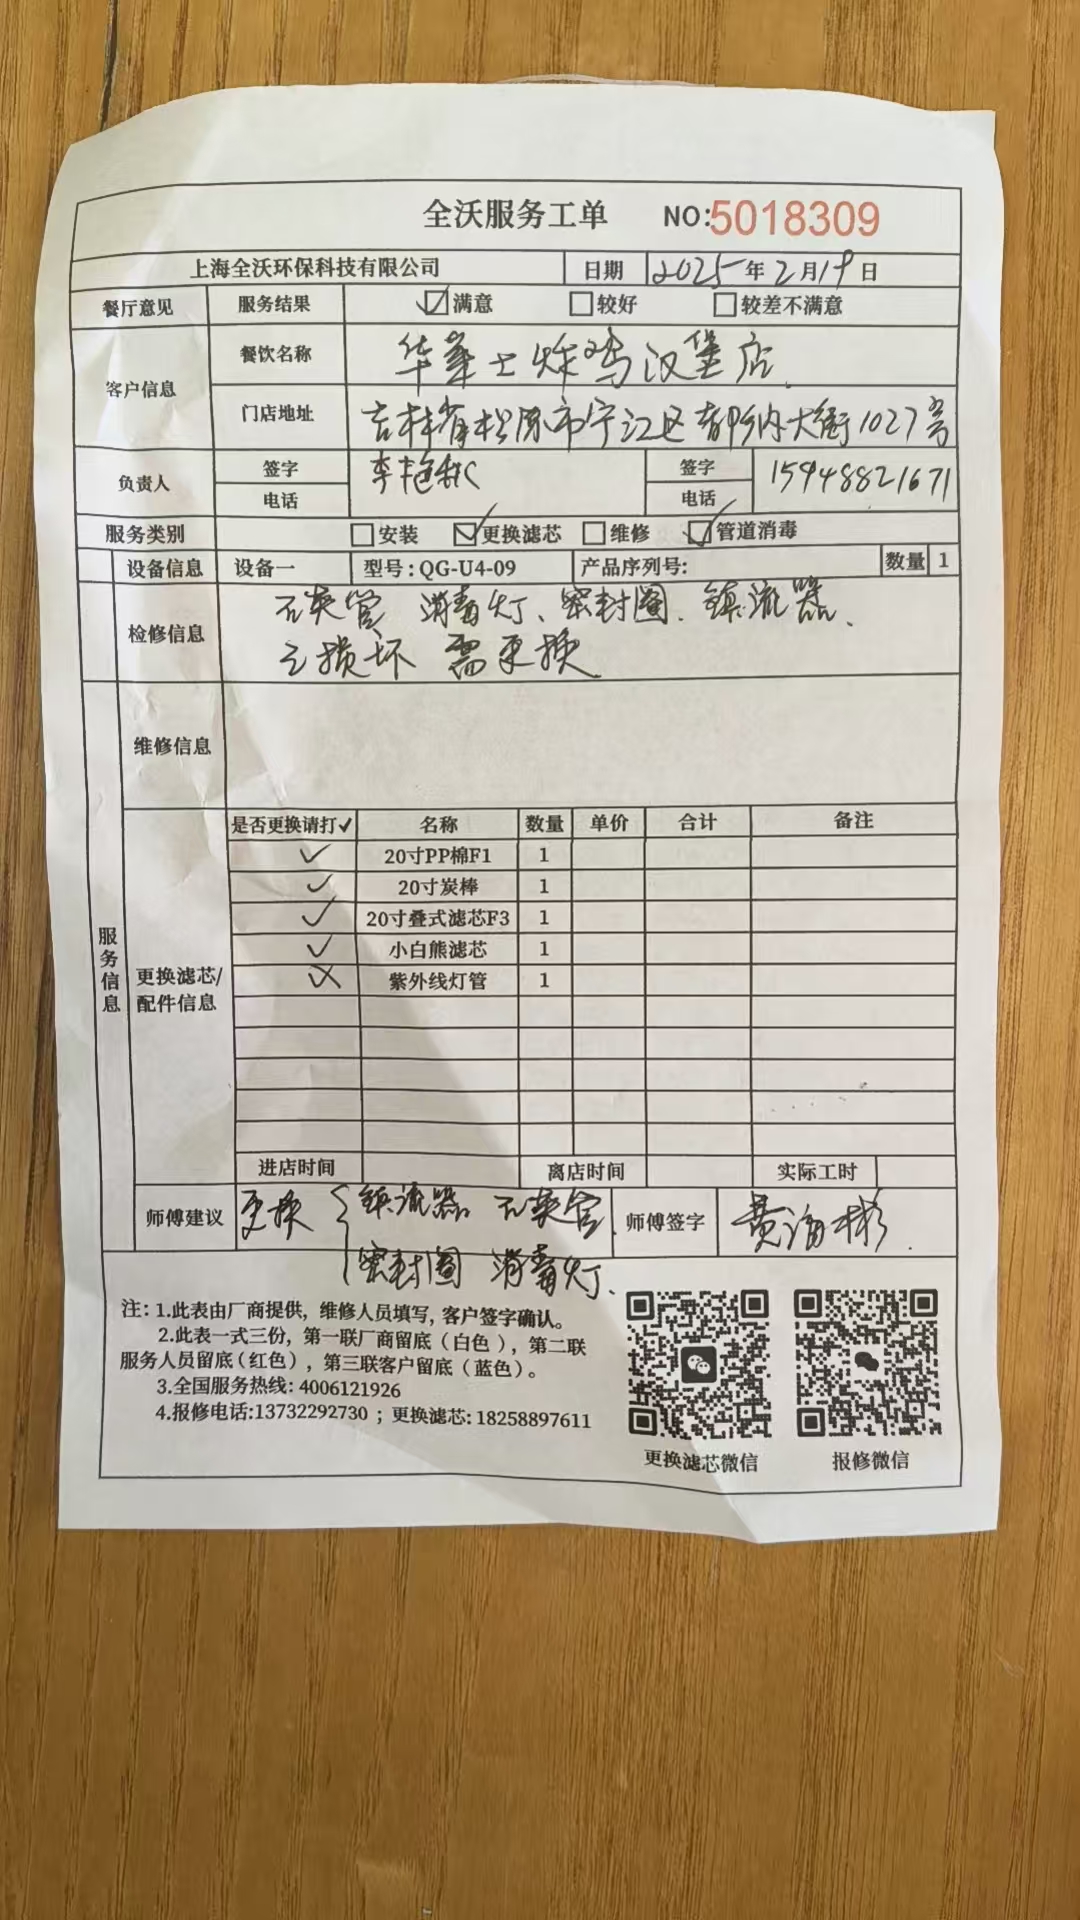 全沃服务工单 NO:5018309
上海全沃环保科技有限公司 日期 2025年2月19日
餐厅意见 服务结果 ☑满意 □较好 □较差不满意
客户信息 餐饮名称 华莱士炸鸡汉堡店
门店地址 吉林省松原市宁江区都纳大街1027号
负责人 签字 李艳秋 签字
电话 电话 15948821671
服务类别 □安装 ☑更换滤芯 □维修 ☑管道消毒
设备信息 设备一 型号:QG-U4-09 产品序列号: 数量 1
检修信息 石英管 消毒灯、密封圈、镇流器、
已损坏 需更换
维修信息
服务信息
更换滤芯/配件信息
是否更换请打✓ 名称 数量 单价 合计 备注
✓ 20寸PP棉F1 1
✓ 20寸炭棒 1
✓ 20寸叠式滤芯F3 1
✓ 小白熊滤芯 1
╳ 紫外线灯管 1
进店时间 离店时间 实际工时
师傅建议 更换 镇流器 石英管 师傅签字
密封圈 消毒灯.
注: 1.此表由厂商提供, 维修人员填写, 客户签字确认。
2.此表一式三份, 第一联厂商留底(白色), 第二联
服务人员留底(红色), 第三联客户留底(蓝色)。
3.全国服务热线: 4006121926
4.报修电话:13732292730 ; 更换滤芯: 18258897611
更换滤芯微信 报修微信